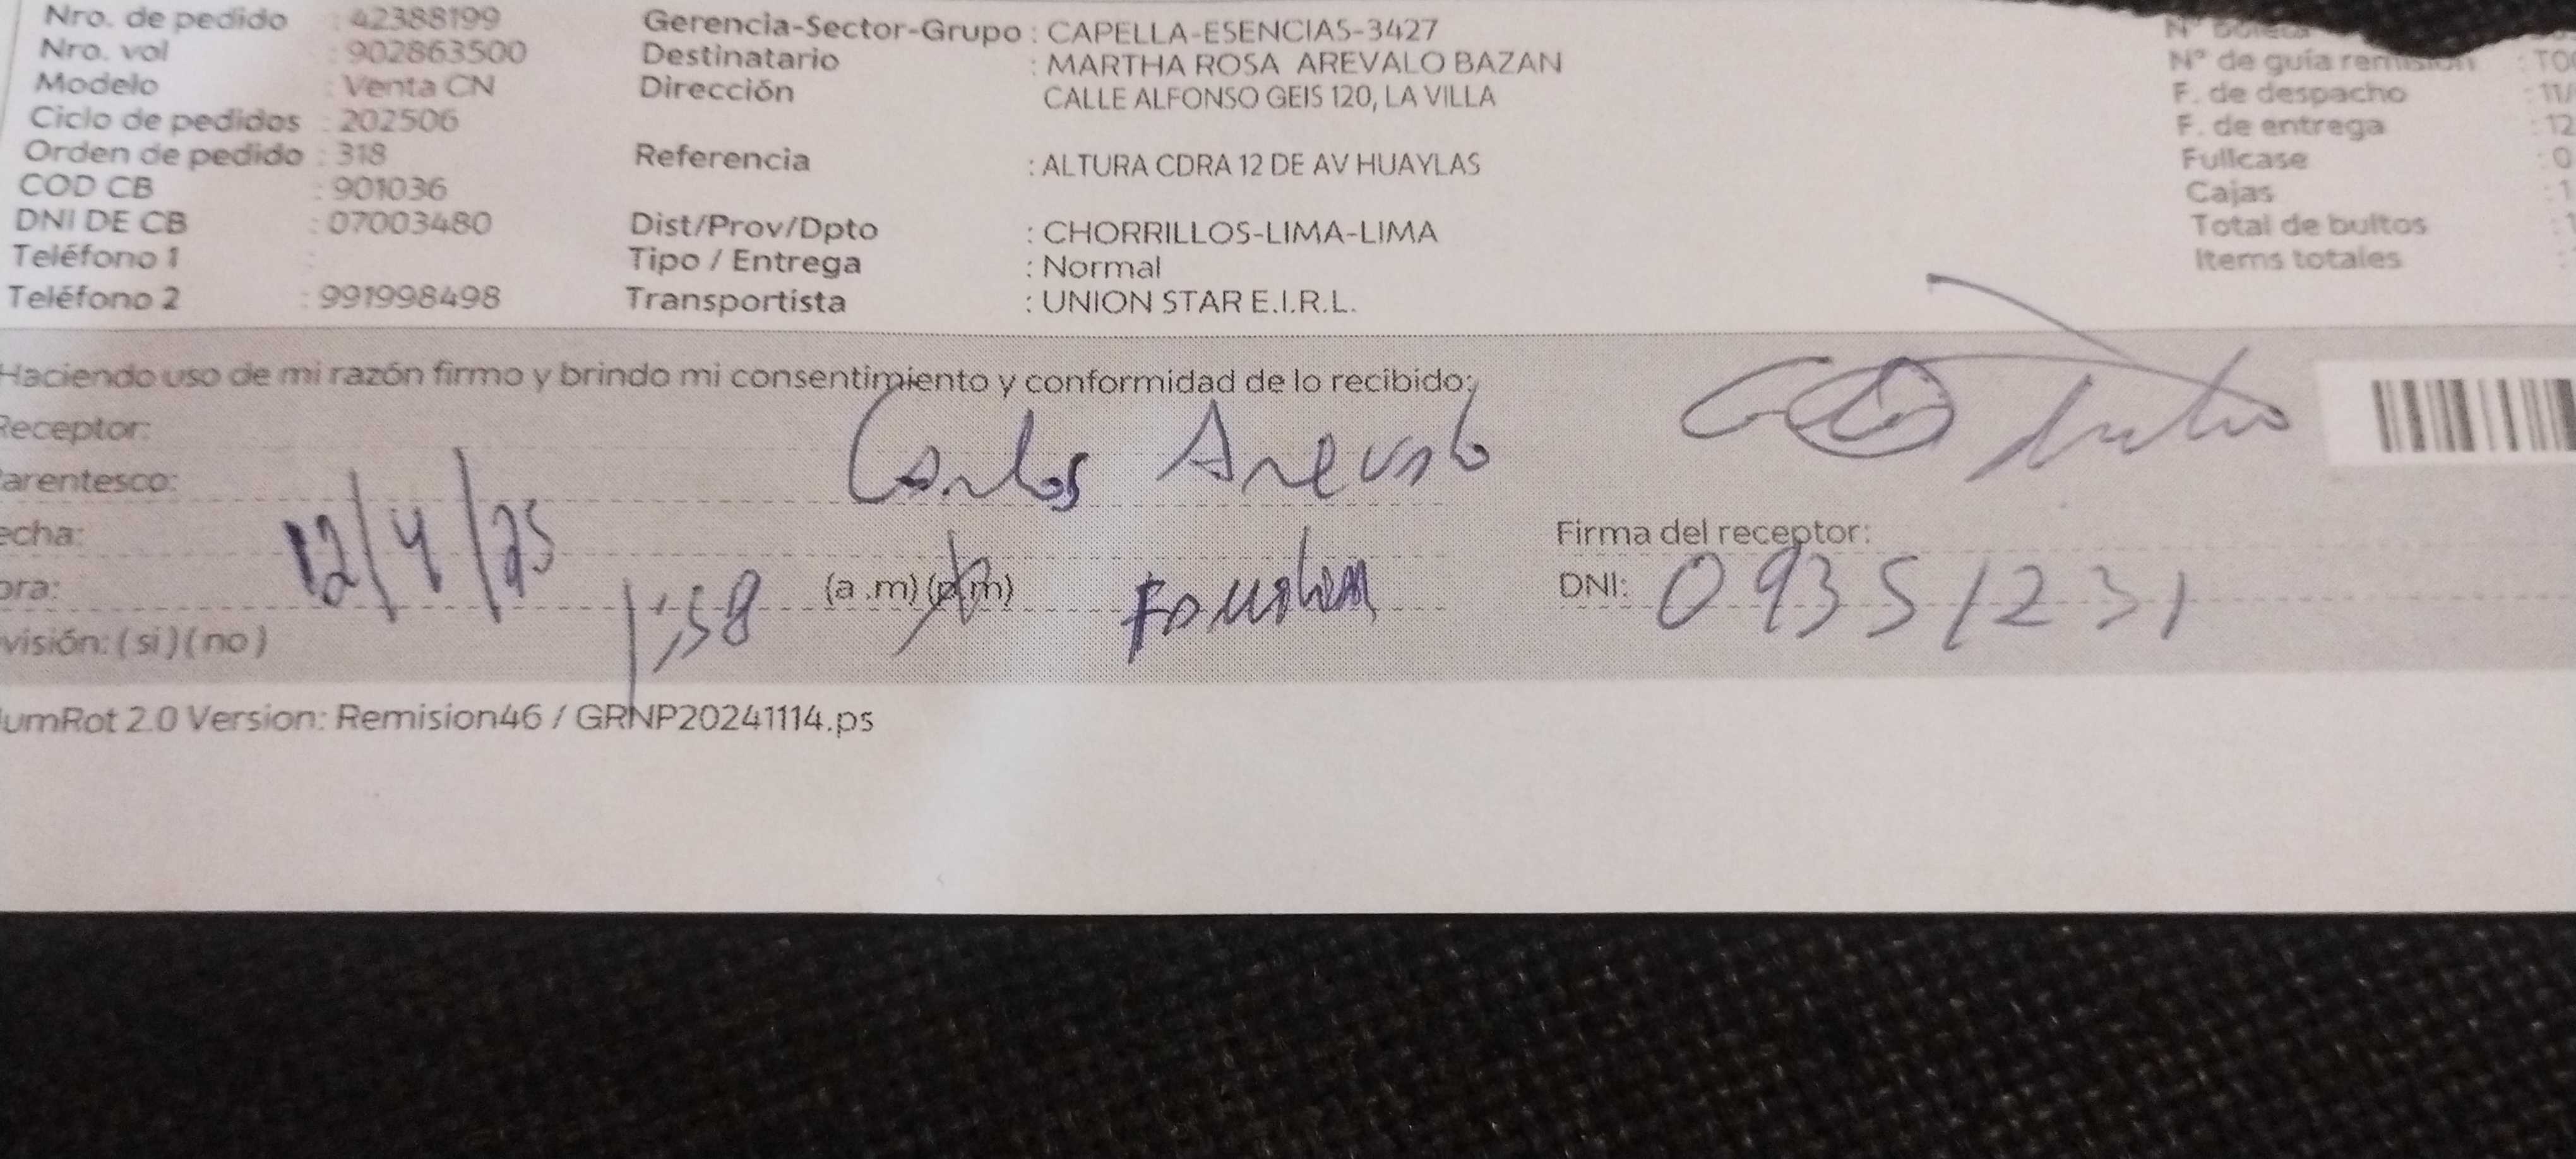 Nro. de pedido : 42388199 Gerencia-Sector-Grupo : CAPELLA-ESENCIAS-3427 N° boleta
Nro. vol : 902863500 Destinatario : MARTHA ROSA AREVALO BAZAN N° de guía remisión
Modelo : Venta CN Dirección CALLE ALFONSO GEIS 120, LA VILLA F. de despacho : 11/
Ciclo de pedidos : 202506 F. de entrega : 12
Orden de pedido : 318 Referencia : ALTURA CDRA 12 DE AV HUAYLAS Fullcase : 0
COD CB : 901036 Cajas : 1
DNI DE CB : 07003480 Dist/Prov/Dpto : CHORRILLOS-LIMA-LIMA Total de bultos :
Teléfono 1 : Tipo / Entrega : Normal Items totales :
Teléfono 2 : 991998498 Transportista : UNION STAR E.I.R.L.
Haciendo uso de mi razón firmo y brindo mi consentimiento y conformidad de lo recibido:
Receptor: Carlos Arevalo
arentesco:
echa: 12/4/25 Firma del receptor:
ora: 1:58 (a .m) (p.m) Familiar DNI: 09351231
visión: ( si ) ( no )
umRot 2.0 Version: Remision46 / GRNP20241114.ps